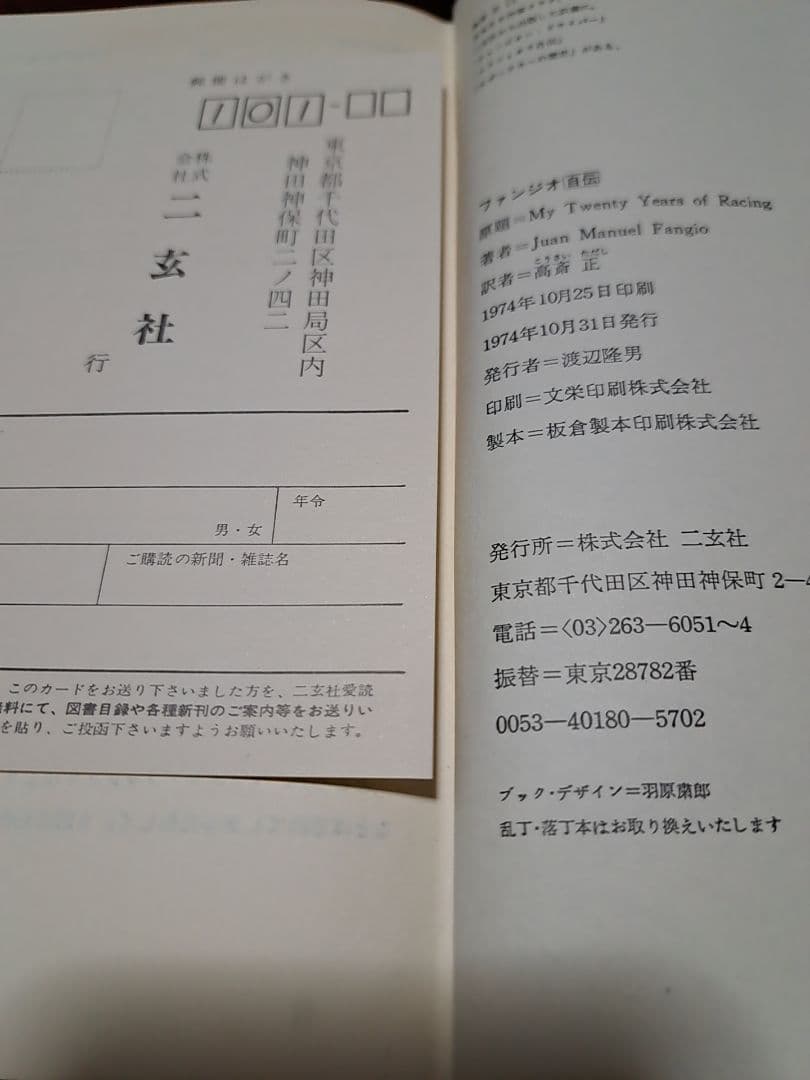 郵便はがき
101-
東京都千代田区神田局区内
神田神保町二ノ四二
株式
会社
二玄社
行
年令
男・女
ご購読の新聞・雑誌名
このカードをお送り下さいました方を、二玄社愛読
料にて、図書目録や各種新刊のご案内等をお送りい
を貼り、ご投函下さいますようお願いいたします。
がある。
ファンジオ自伝
原題=My Twenty Years of Racing
著者=Juan Manuel Fangio
こうさい ただし
訳者=高斎 正
1974年10月25日印刷
1974年10月31日発行
発行者=渡辺隆男
印刷=文栄印刷株式会社
製本=板倉製本印刷株式会社
発行所=株式会社 二玄社
東京都千代田区神田神保町 2—4
電話=〈03〉263—6051〜4
振替=東京28782番
0053—40180—5702
ブック・デザイン=羽原粛郎
乱丁・落丁本はお取り換えいたします